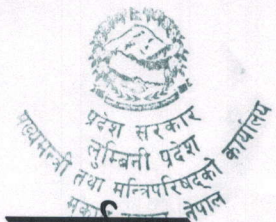 प्रदेश सरकार
लुम्बिनी प्रदेश
मुख्यमन्त्री तथा मन्त्रिपरिषद्को कार्यालय
नेपाल